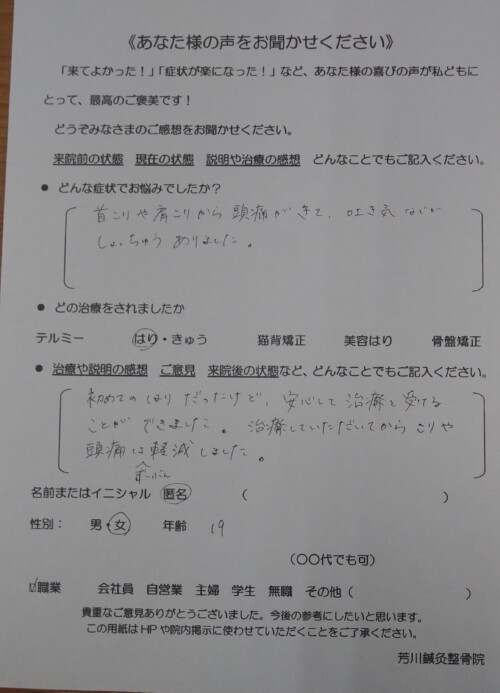 《あなた様の声をお聞かせください》
「来てよかった！」「症状が楽になった！」など、あなた様の喜びの声が私どもに
とって、最高のご褒美です！
どうぞみなさまのご感想をお聞かせください。
来院前の状態　現在の状態　説明や治療の感想　どんなことでもご記入ください。
● どんな症状でお悩みでしたか？
首こりや肩こりから頭痛がきて、吐き気などが
しょっちゅうありました。
● どの治療をされましたか
テルミー　はり・きゅう　猫背矯正　美容はり　骨盤矯正
● 治療や説明の感想　ご意見　来院後の状態など、どんなことでもご記入ください。
初めてのはりだったけど、安心して治療を受ける
ことができました。治療していただいてからこりや
頭痛は軽減しました。
名前またはイニシャル　匿名　（　）
性別：　男・女　年齢　19
（〇〇代でも可）
職業　会社員　自営業　主婦　学生　無職　その他（　）
貴重なご意見ありがとうございました。今後の参考にしたいと思います。
この用紙はHPや院内掲示に使わせていただくことをご了承ください。
芳川鍼灸整骨院